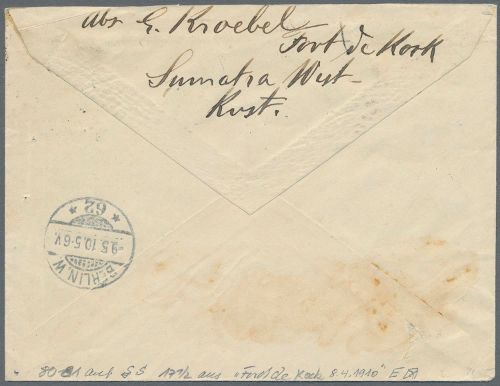 Abs G. Kroebel
Fort de Kock
Sumatra West-
Kust.
BERLIN.W
-9.5.10.5-6V.
* 62 *
80-81 auf GS 17½ aus "Fort de Kock 8.4.1910"